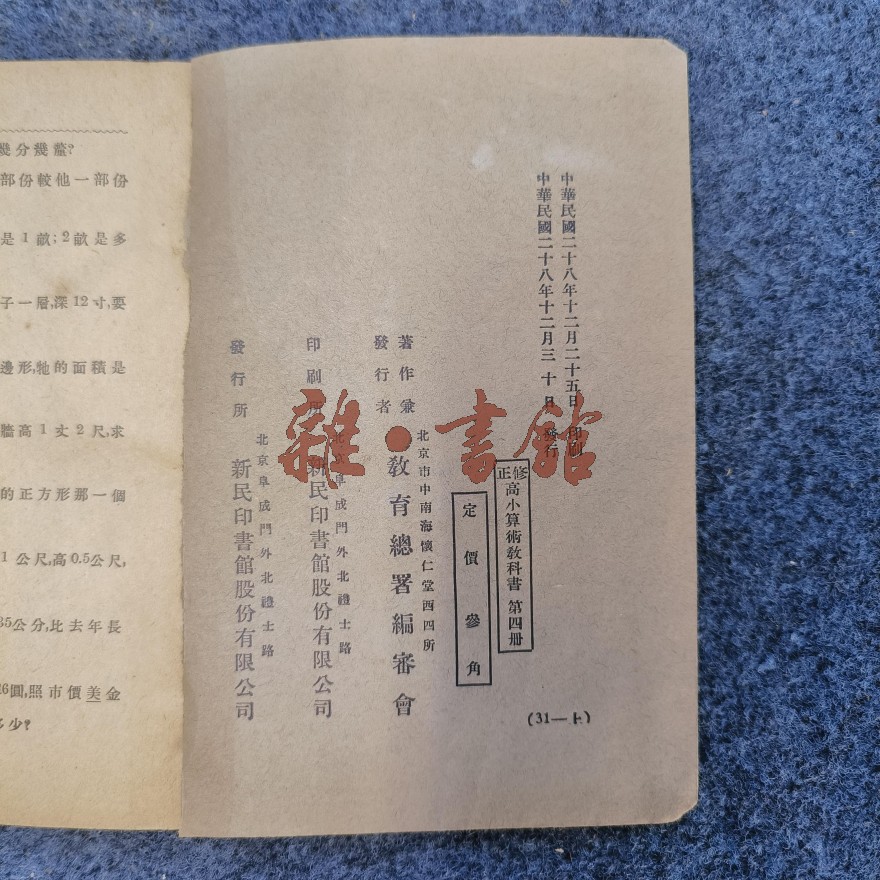 中華民國二十八年十二月二十五日 印刷
中華民國二十八年十二月三十日 發行
修正高小算術教科書 第四册
定價參角
(31—上)
北京市中南海懷仁堂西四所
著作兼
發行者
教育總署編審會
北京阜成門外北禮士路
印刷所
新民印書館股份有限公司
北京阜成門外北禮士路
發行所
新民印書館股份有限公司
雜·書館
幾分幾釐?
部份較他一部份
是1畝;2畝是多
子一層,深12寸,要
邊形,牠的面積是
牆高1丈2尺,求
的正方形那一個
1公尺,高0.5公尺,
35公分,比去年長
26圓,照市價美金
多少?